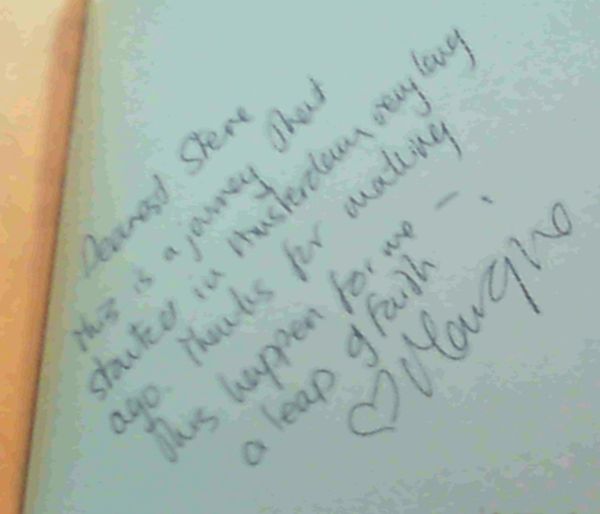 Dearest Steve
this is a journey that
started in Amsterdam very long
ago. Thanks for making
this happen for me —
a leap of faith.
♡ Margine